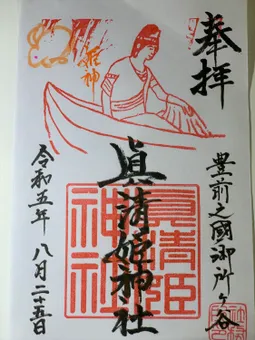 奉拝
豊前之國御所ヶ谷
姫神
眞清姫神社
眞清姫神社
令和五年 八月二十五日